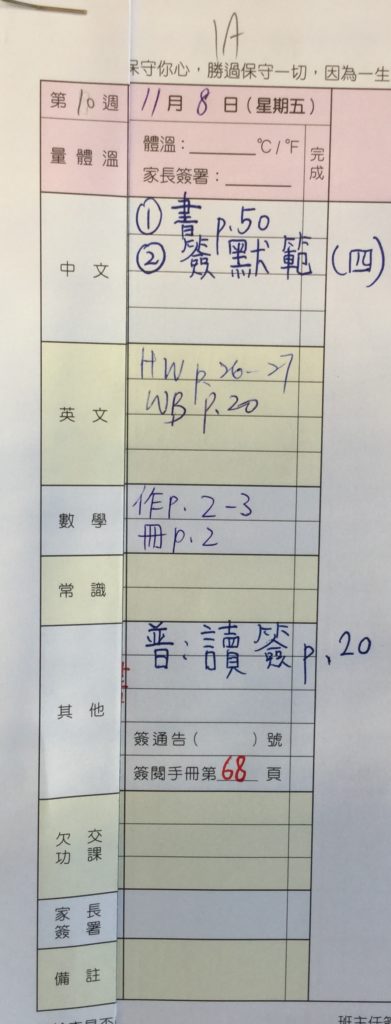 1A
保守你心，勝過保守一切，因為一生
第10週 11月8日(星期五)
量體溫 體溫：______℃/℉ 完成
家長簽署：______
中文 ① 書 p.50
② 簽默範(四)
英文 HW p.26-27
WB p.20
數學 作p.2-3
冊p.2
常識
其他 普：讀簽p.20
簽通告( )號
簽閱手冊第68頁
欠交功課
家長簽署
備註
班主任簽